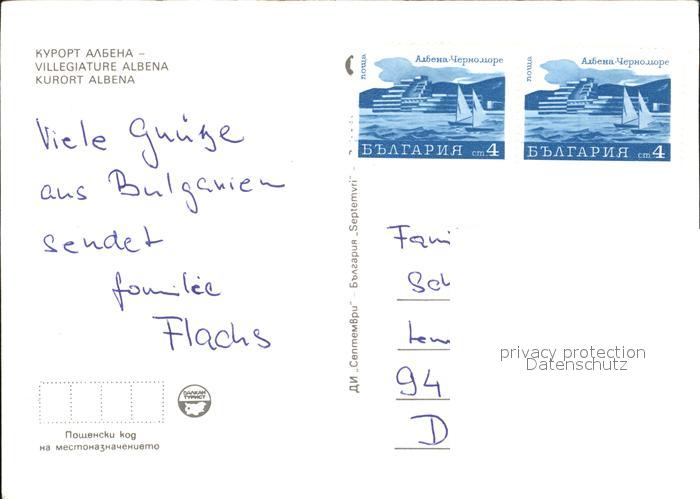 КУРОРТ АЛБЕНА –
VILLEGIATURE ALBENA
KURORT ALBENA
Viele Grüße
aus Bulgarien
sendet
familie
Flachs
Пощенски код
на местоназначението
БАЛКАН
ТУРИСТ
ДИ „Септември" - България „Septemvri" -
поща
Албена-Черноморе
БЪЛГАРИЯ ст 4
поща
Албена-Черноморе
БЪЛГАРИЯ ст 4
Fami
Sch
94
D
privacy protection
Datenschutz